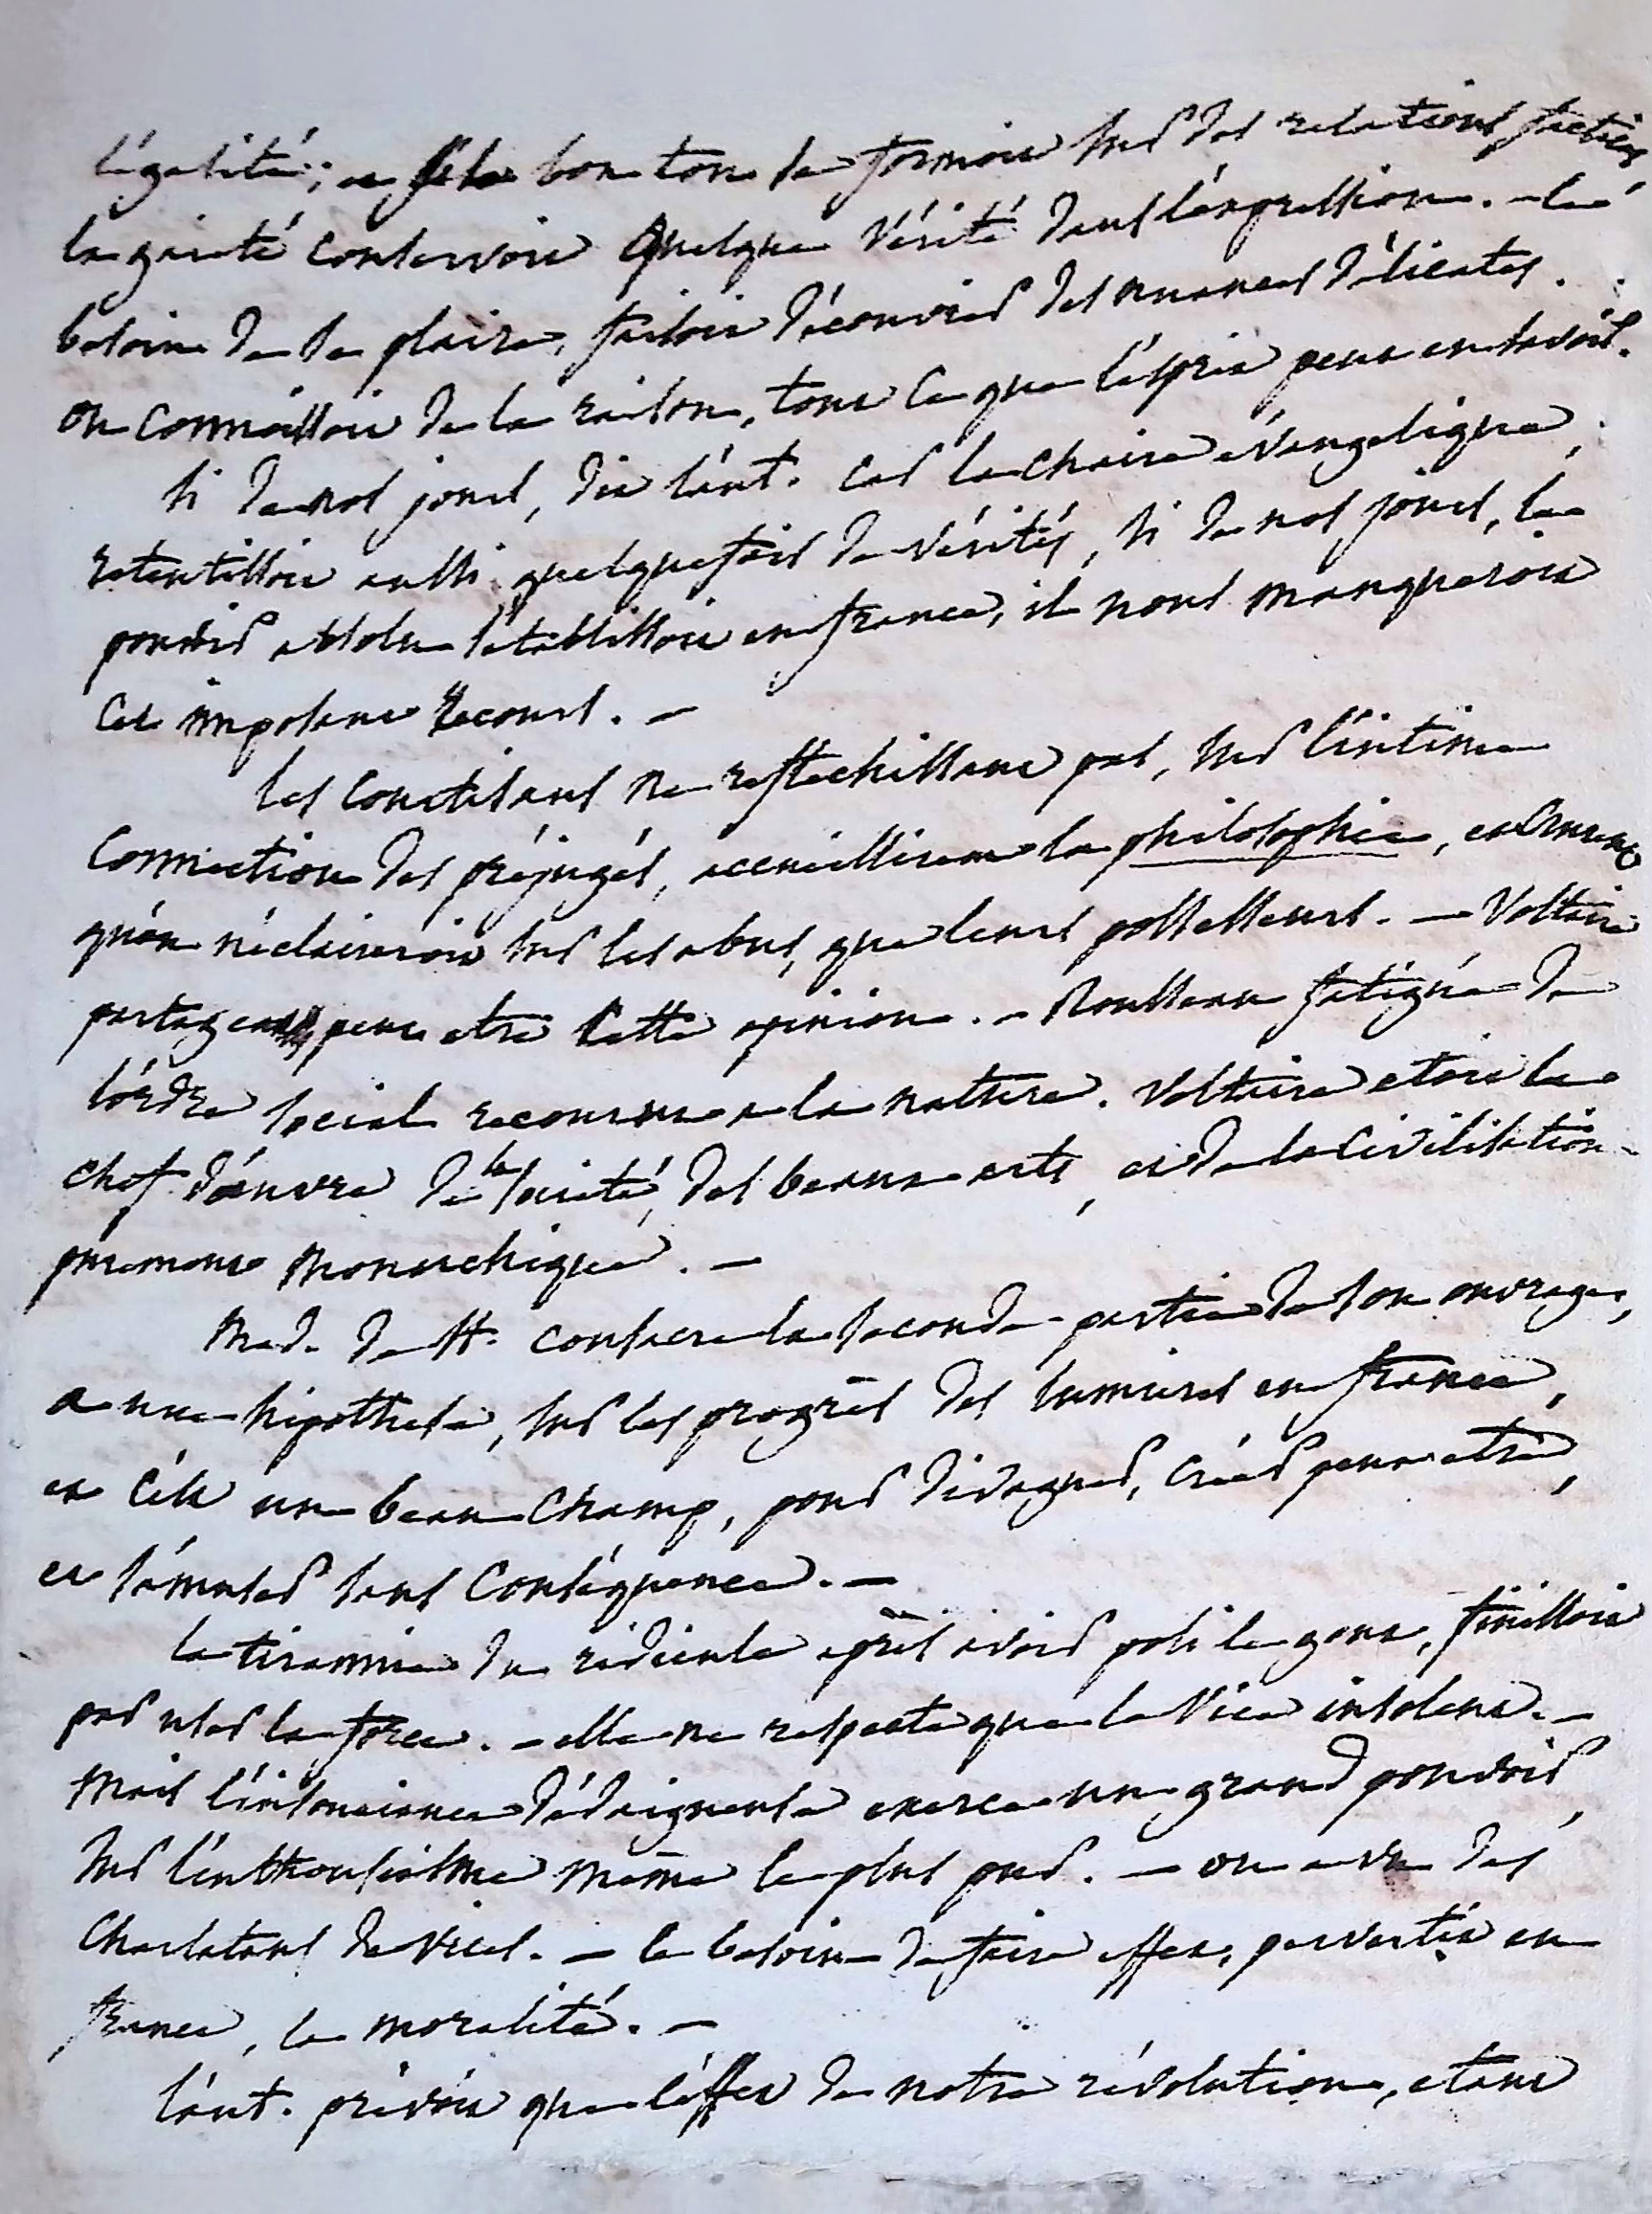 l'égalité; et si le bon ton se formoit sur des relations factices
la gaieté conservoit quelque vérité dans l'expression. – le
besoin de se plaire, faisoit découvrir des nuances délicates.
on connaissoit de la raison, tout ce que l'esprit peut en savoir.
si de nos jours, dit l'aut. car la chaire évangelique,
retentissoit aussi quelquefois de vérités, si de nos jours, le
pouvoir absolu s'etablissoit en france, il nous manqueroit
cet imposant recours. –
les courtisans ne reflechissant pas, sur l'intime
connection des préjugés, accueillirent la philosophie, en
qu'on n'éclaireroit sur les abus, que leurs possesseurs. – Voltaire
partagea peut etre cette opinion. – Rousseau fatigué de
l'ordre social recourut a la nature. Voltaire etoit le
chef d'œuvre de la société, des beaux arts, et de la civilisation
purement monarchique. –
Mad. de St. consacre la seconde partie de son ouvrage,
a une hipothese, sur les progrès des lumieres en france,
et c'est un beau champ, pour divaguer, créer peut etre,
et s'amuser sans conséquence. –
la tirannie du ridicule après avoir poli le gout, finissoit
par user la force. – elle ne respecte que le vice insolent. –
Mais l'insouciance dédaigneuse exerce un grand pouvoir,
sur l'enthousiasme même le plus pur. – on a vu des
charlatans de vices. – le besoin de faire effet, pervertit en
france, la moralité. –
l'aut. prévoit que l'effet de notre révolution, etant